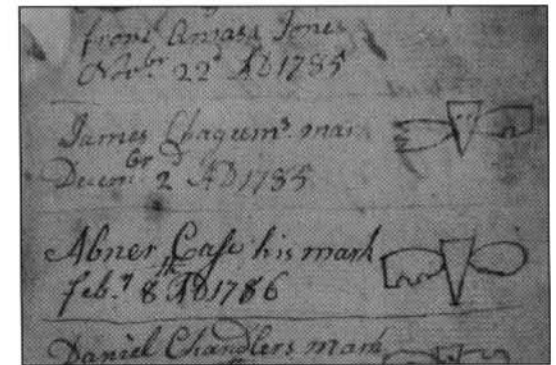 from Amasa Jones
Novbr 22d AD 1785
James Chaqum's mark
Decembr 2d AD 1785
Abner Case his mark
feb.y 8th AD 1786
Daniel Chandlers mark